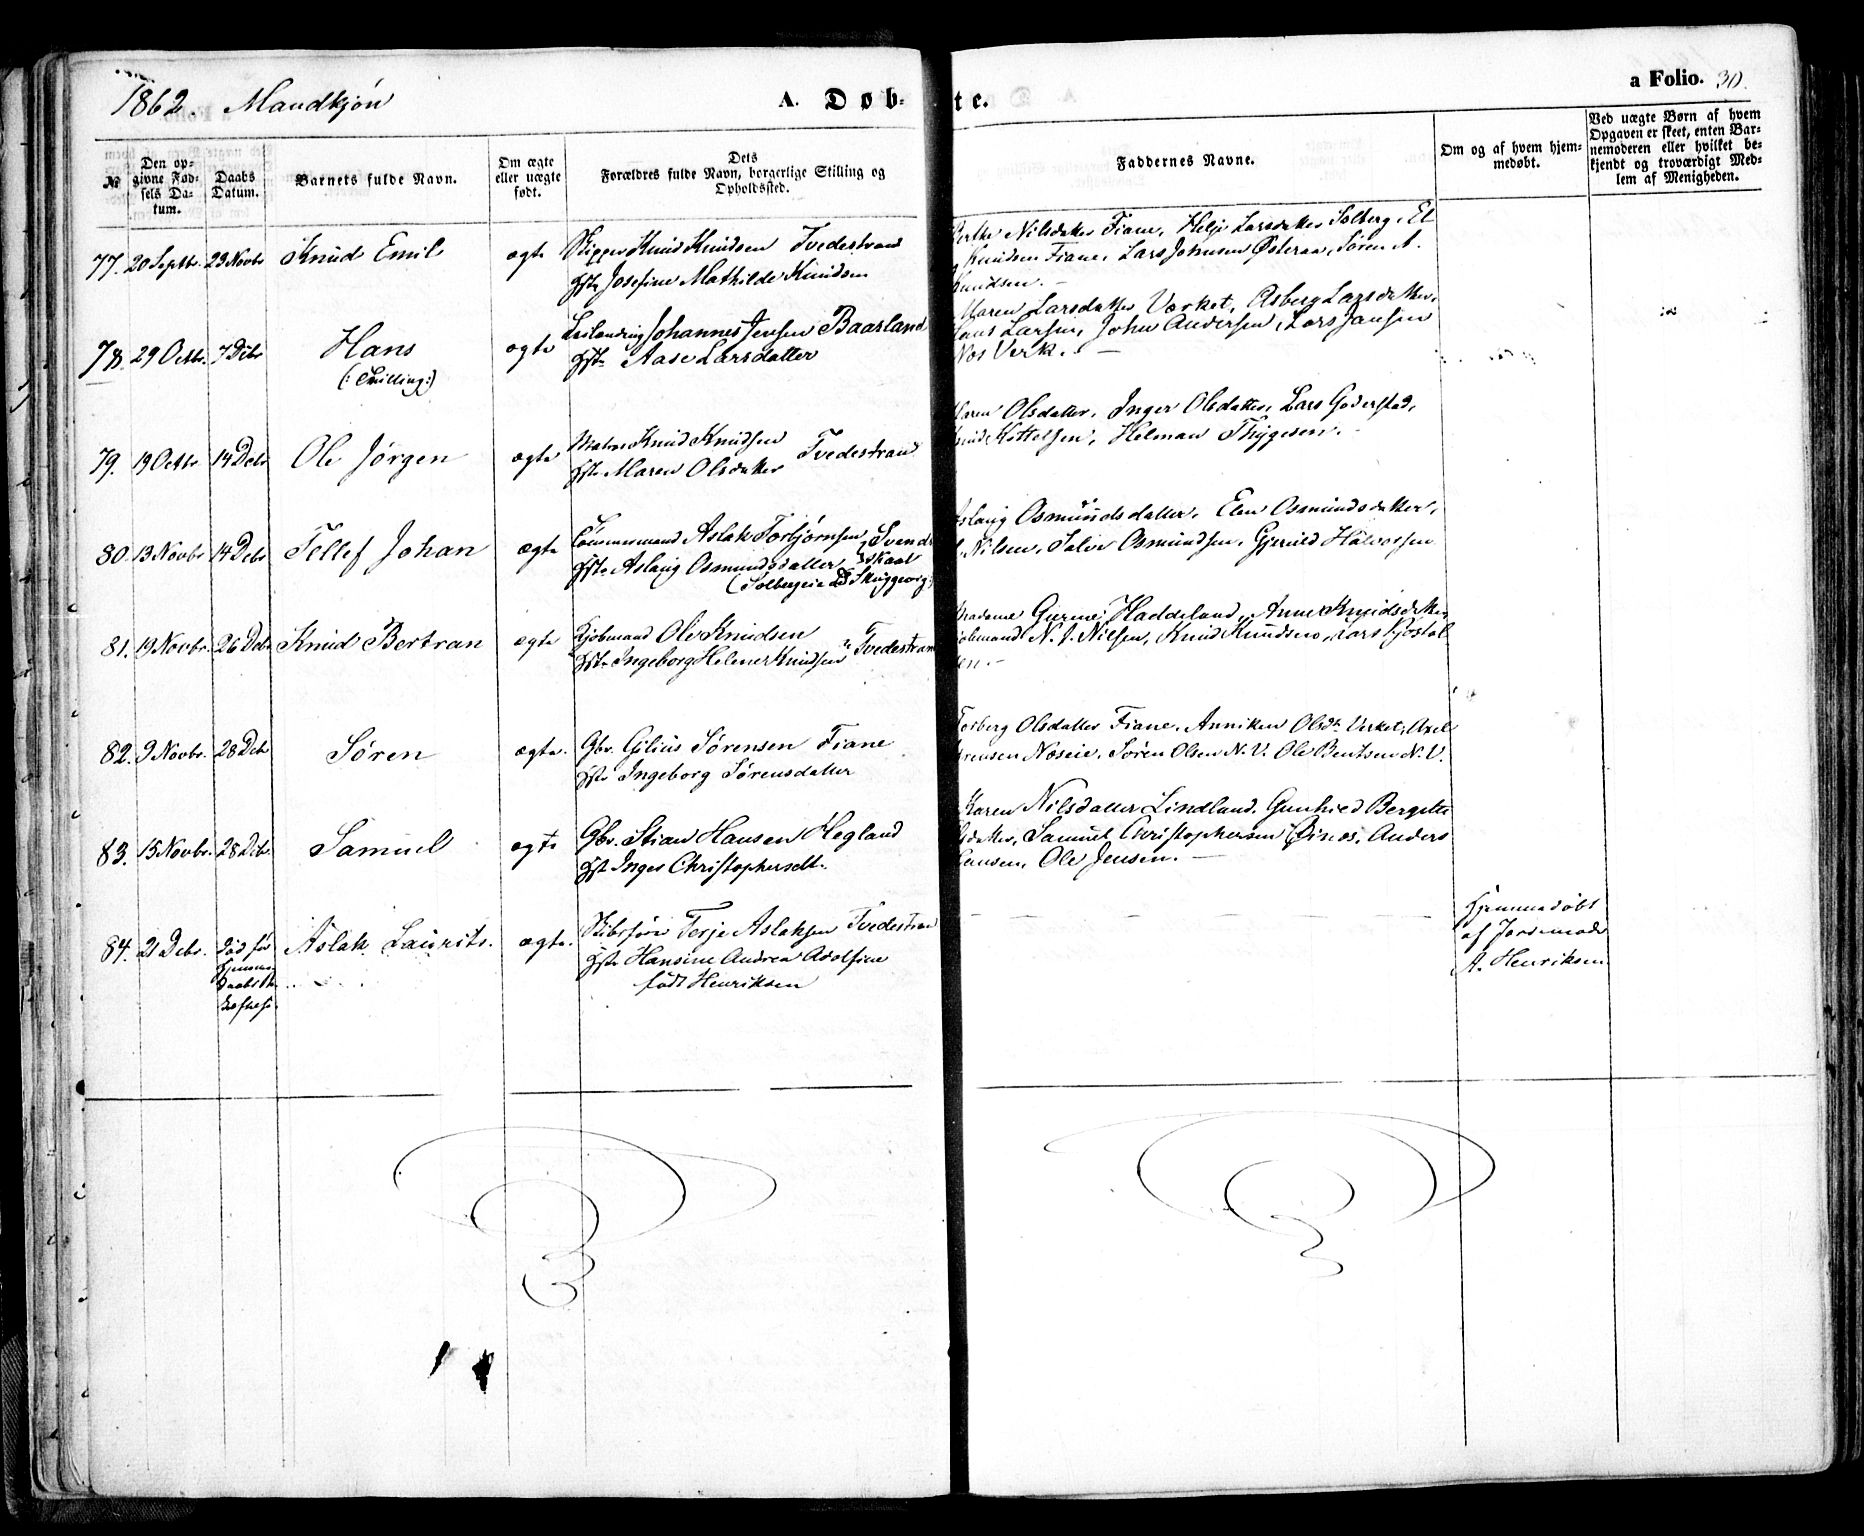 1862. Mandkjøn
A. Døb-
te.
a Folio. 30.
№
Den op-
givne Fød-
sels Da-
tum.
Daabs
Datum.
Barnets fulde Navn.
Om ægte
eller uægte
født.
Dets
Forældres fulde Navn, borgerlige Stilling og
Opholdssted.
Faddernes Navne.
Om og af hvem hjem-
medøbt.
Ved uægte Børn af hvem
Opgaven er skeet, enten Bar-
nemoderen eller hvilket be-
kjendt og troværdigt Med-
lem af Menigheden.
77. 20 Septbr. 23 Novbr Knud Emil ægte Skipper Knud Knudsen Tvedestrand
Hst. Josefine Mathilde Knudsen
Berthe Nilsdatter Fiane, Helje Larsdatter Solberg, El
Knudsen Fiane, Lars Johnsen Østeraa, Søren A.
Knudsen. -
78. 29 Octbr. 7 Dcbr Hans
(: Tvilling :)
ægte Leilending Johannes Jensen Baasland
Hst. Aase Larsdatter
Maren Larsdatter Værket, Asberg Larsdatter,
Hans Larsen, John Andersen, Lars Jansen
Næs Verk. -
79. 19 Octbr 14 Dcbr Ole Jørgen ægte Matros Knud Knudsen
Hst. Maren Olsdatter Tvedestrand
Maren Olsdatter, Inger Olsdatter, Lars Goderstad,
Knud Kittelsen, Helman Thygesen. -
80. 13 Novbr 14 Dcbr Tellef Johan ægte Tømmermand Aslak Torbjørnsen Svends
Hst. Aslaug Osmundsdatter skaat
(Solbergeie Skuggevig)
Aslaug Osmundsdatter, Elen Osmundsdatter,
Nilsen, Salve Osmundsen, Gjeruld Halvorsen
81. 19 Novbr. 26 Dcbr Knud Bertran ægte Kjøbmand Ole Knudsen
Hst. Ingeborg Helene Knudsen Tvedestrand
Madame Gurine Haddeland, Anne Knudsdatter
Kjøbmand N. J. Nilsen, Knud Knudsen, Lars
sen. -
82. 9 Novbr. 28 Dcb Søren ægte. Gbr. Gilius Sørensen Fiane
Hst. Ingeborg Sørensdatter
Torberg Olsdatter Fiane, Anniken Olsdt. Verket, Axel
Sørensen Næseie, Søren Olsen N. V. Ole Bentsen N. V.
83. 15 Novbr. 28 Dcbr. Samuel ægte Gbr. Stian Hansen Hegland
Hst. Inger Christophersdt.
Karen Nilsdatter Lindland, Gunhied Bergitte
datter, Samuel Christophersen Øines, Anders
Hansen, Ole Jensen. -
84. 21 Dcbr. Død før
Hjemme-
Daabs
Aslak Laurits. ægte. Skibsfører Terje Aslaksen Tvedestrand
Hst. Hansine Andrea Adolfine
født Henriksen
Hjemmedøbt
af Jordemoder
A. Henriksen